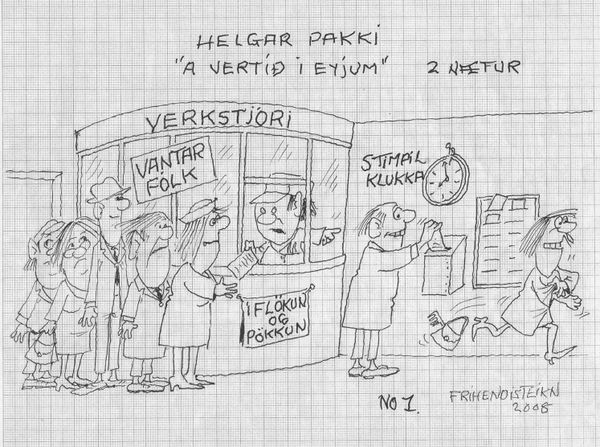 HELGAR PAKKI
"A VERTIÐ I EYJUM" 2 NÆTUR
VERKSTJÓRI
VANTAR
FÓLK
STIMPIL
KLUKKA
Í FLÖKUN
OG
PÖKKUN
NO 1.
2008